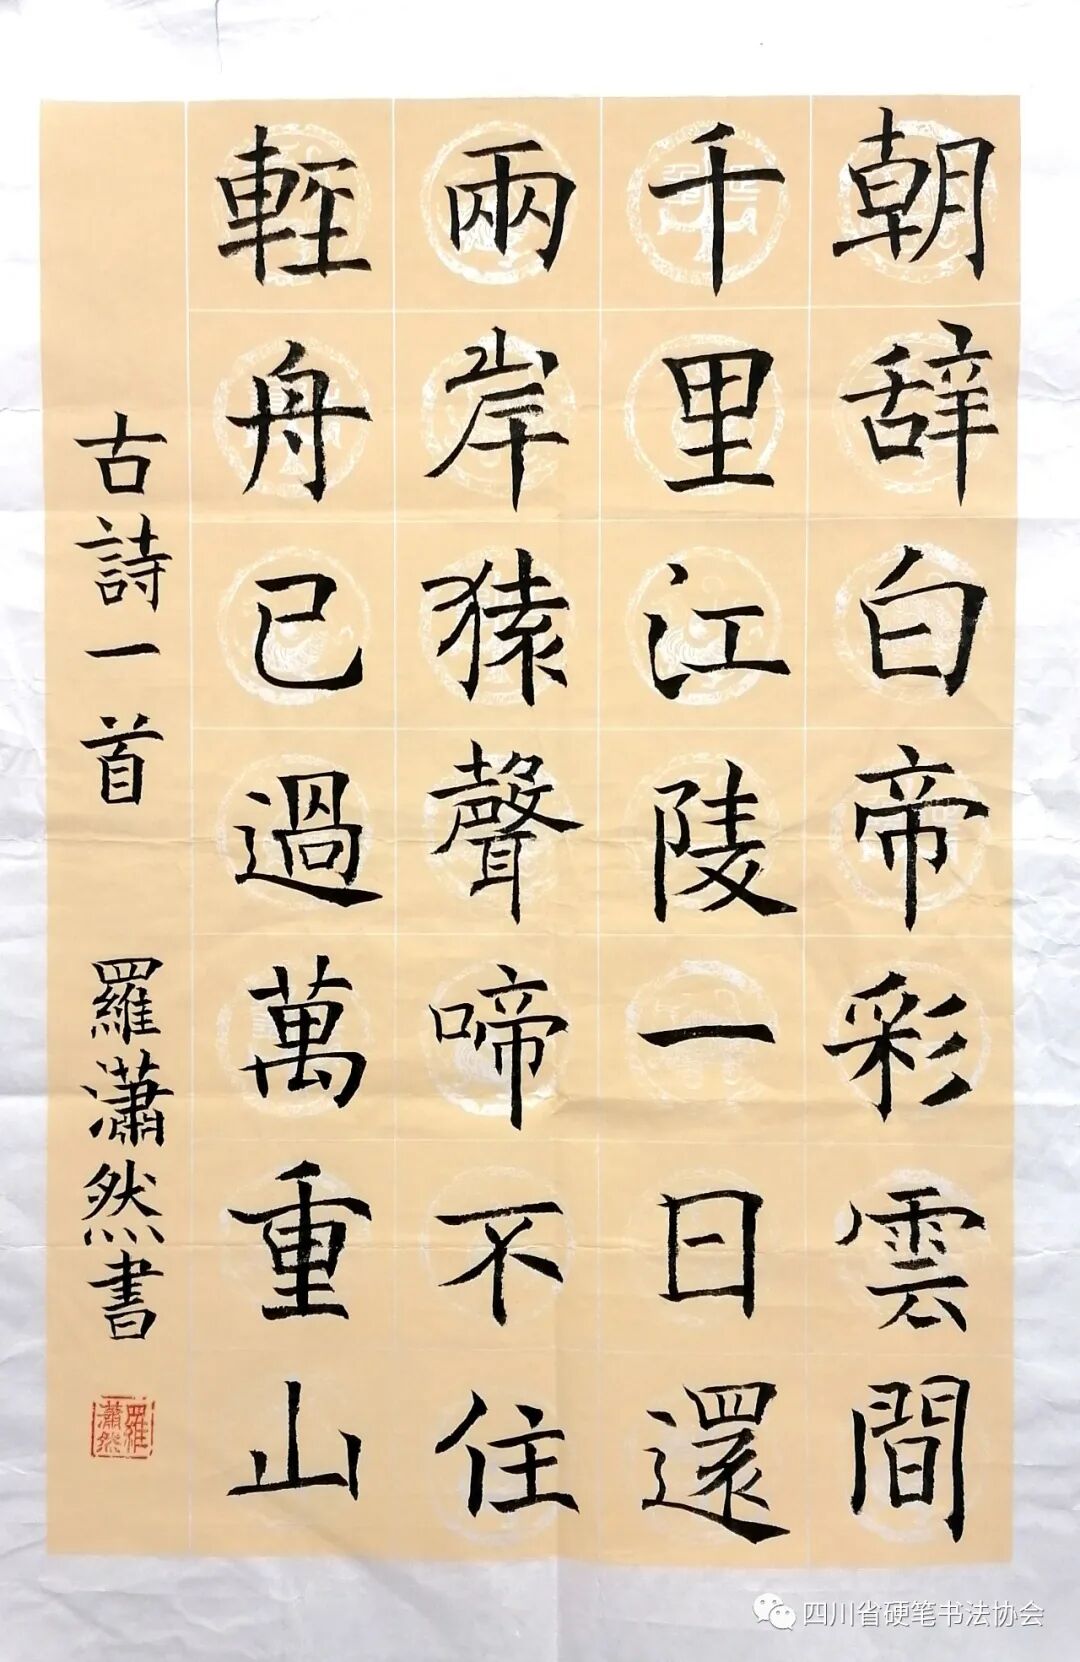 朝辞白帝彩雲間
千里江陵一日還
兩岸猿聲啼不住
輕舟已過萬重山
古詩一首 羅瀟然書
羅瀟然
四川省硬笔书法协会